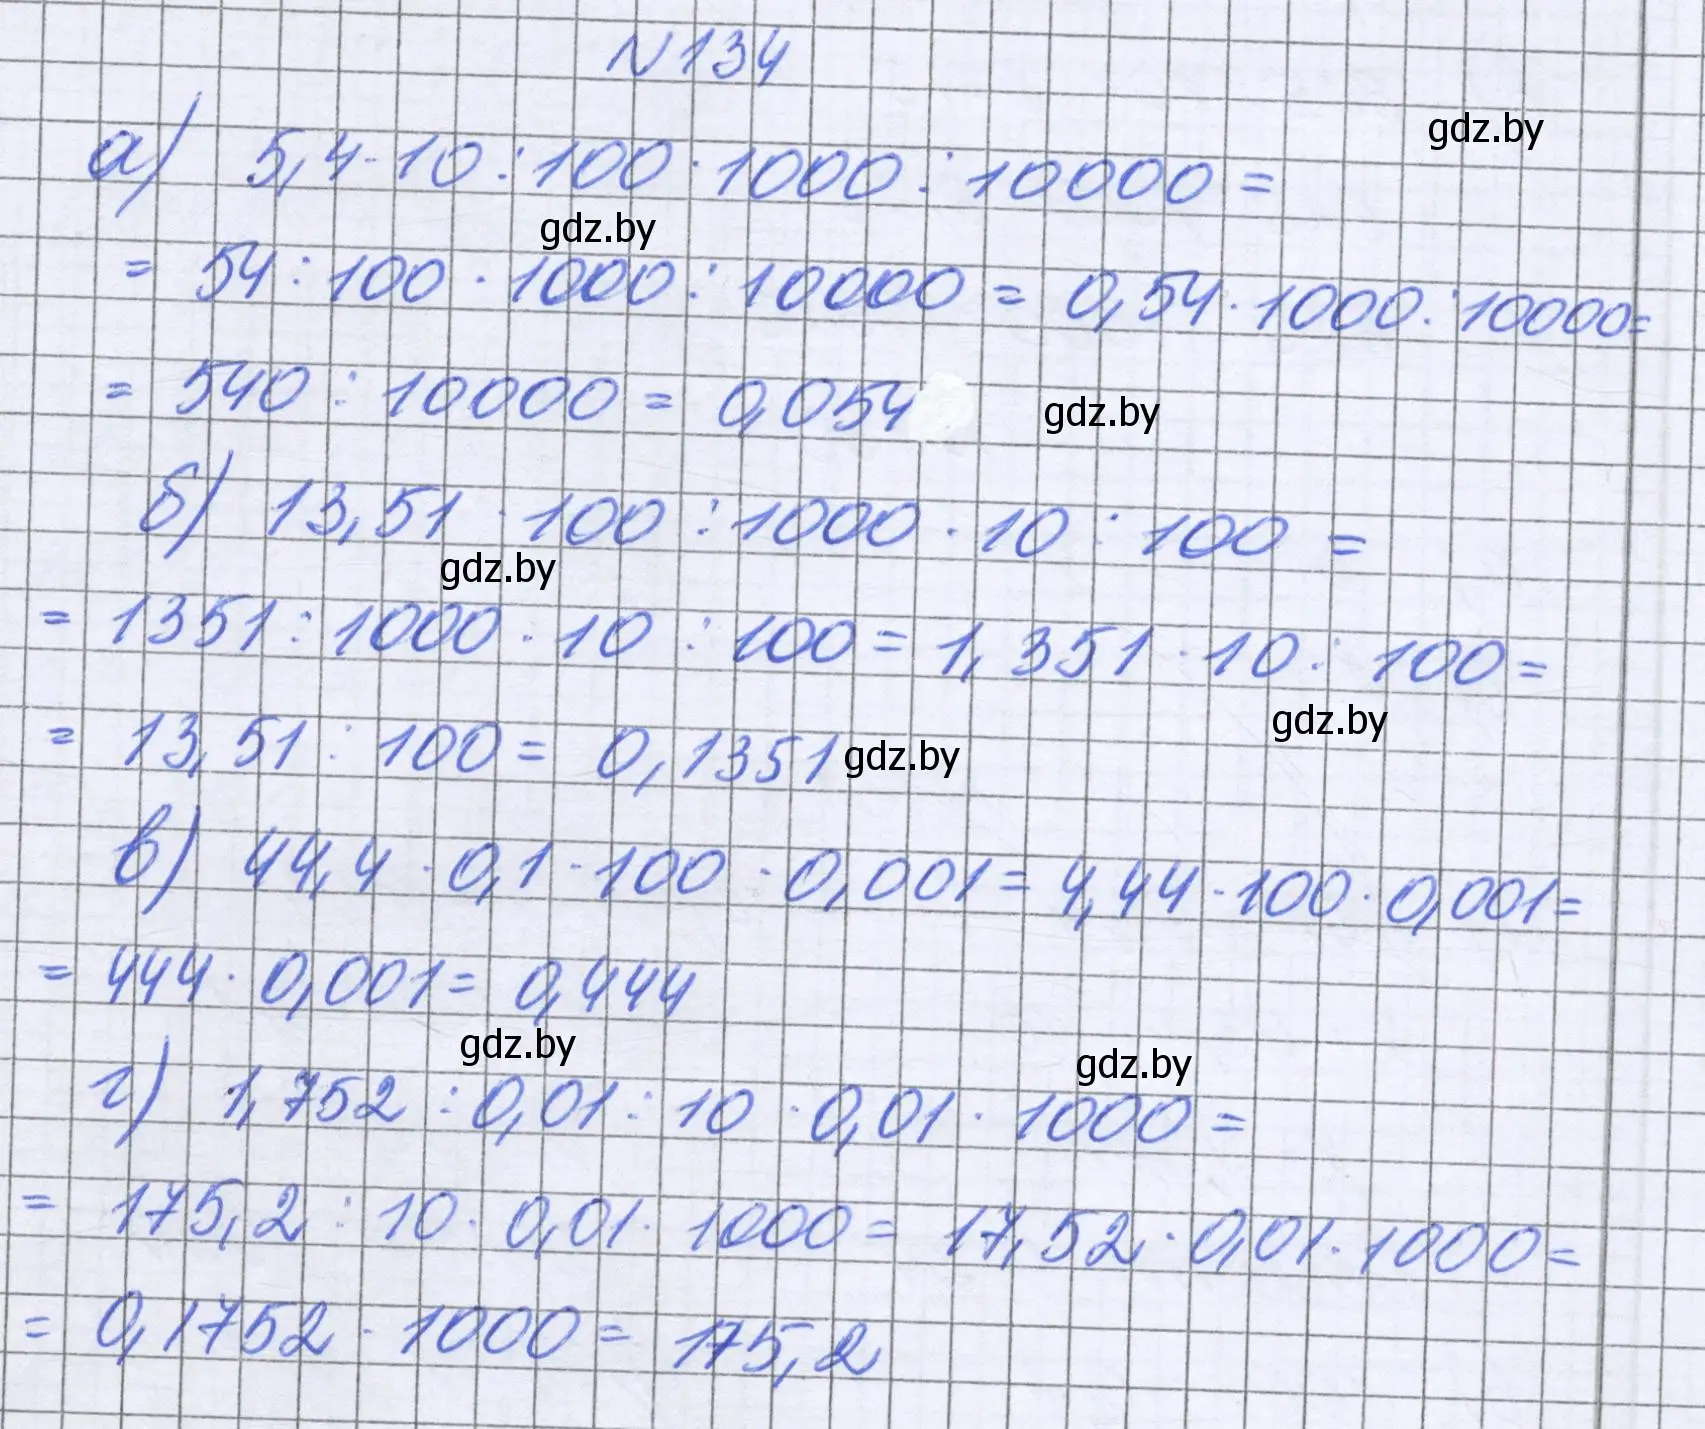 N134
gdz.by
а) 5,4·10:100·1000:10000=
gdz.by
= 54:100·1000:10000 = 0,54·1000:10000=
= 540:10000 = 0,054
gdz.by
б) 13,51·100:1000·10:100 =
gdz.by
= 1351:1000·10:100 = 1,351·10:100=
gdz.by
= 13,51:100 = 0,1351
gdz.by
в) 44,4·0,1·100·0,001 = 4,44·100·0,001=
= 444·0,001 = 0,444
gdz.by
gdz.by
г) 1,752:0,01:10·0,01·1000 =
= 175,2:10·0,01·1000 = 17,52·0,01·1000=
= 0,1752·1000 = 175,2